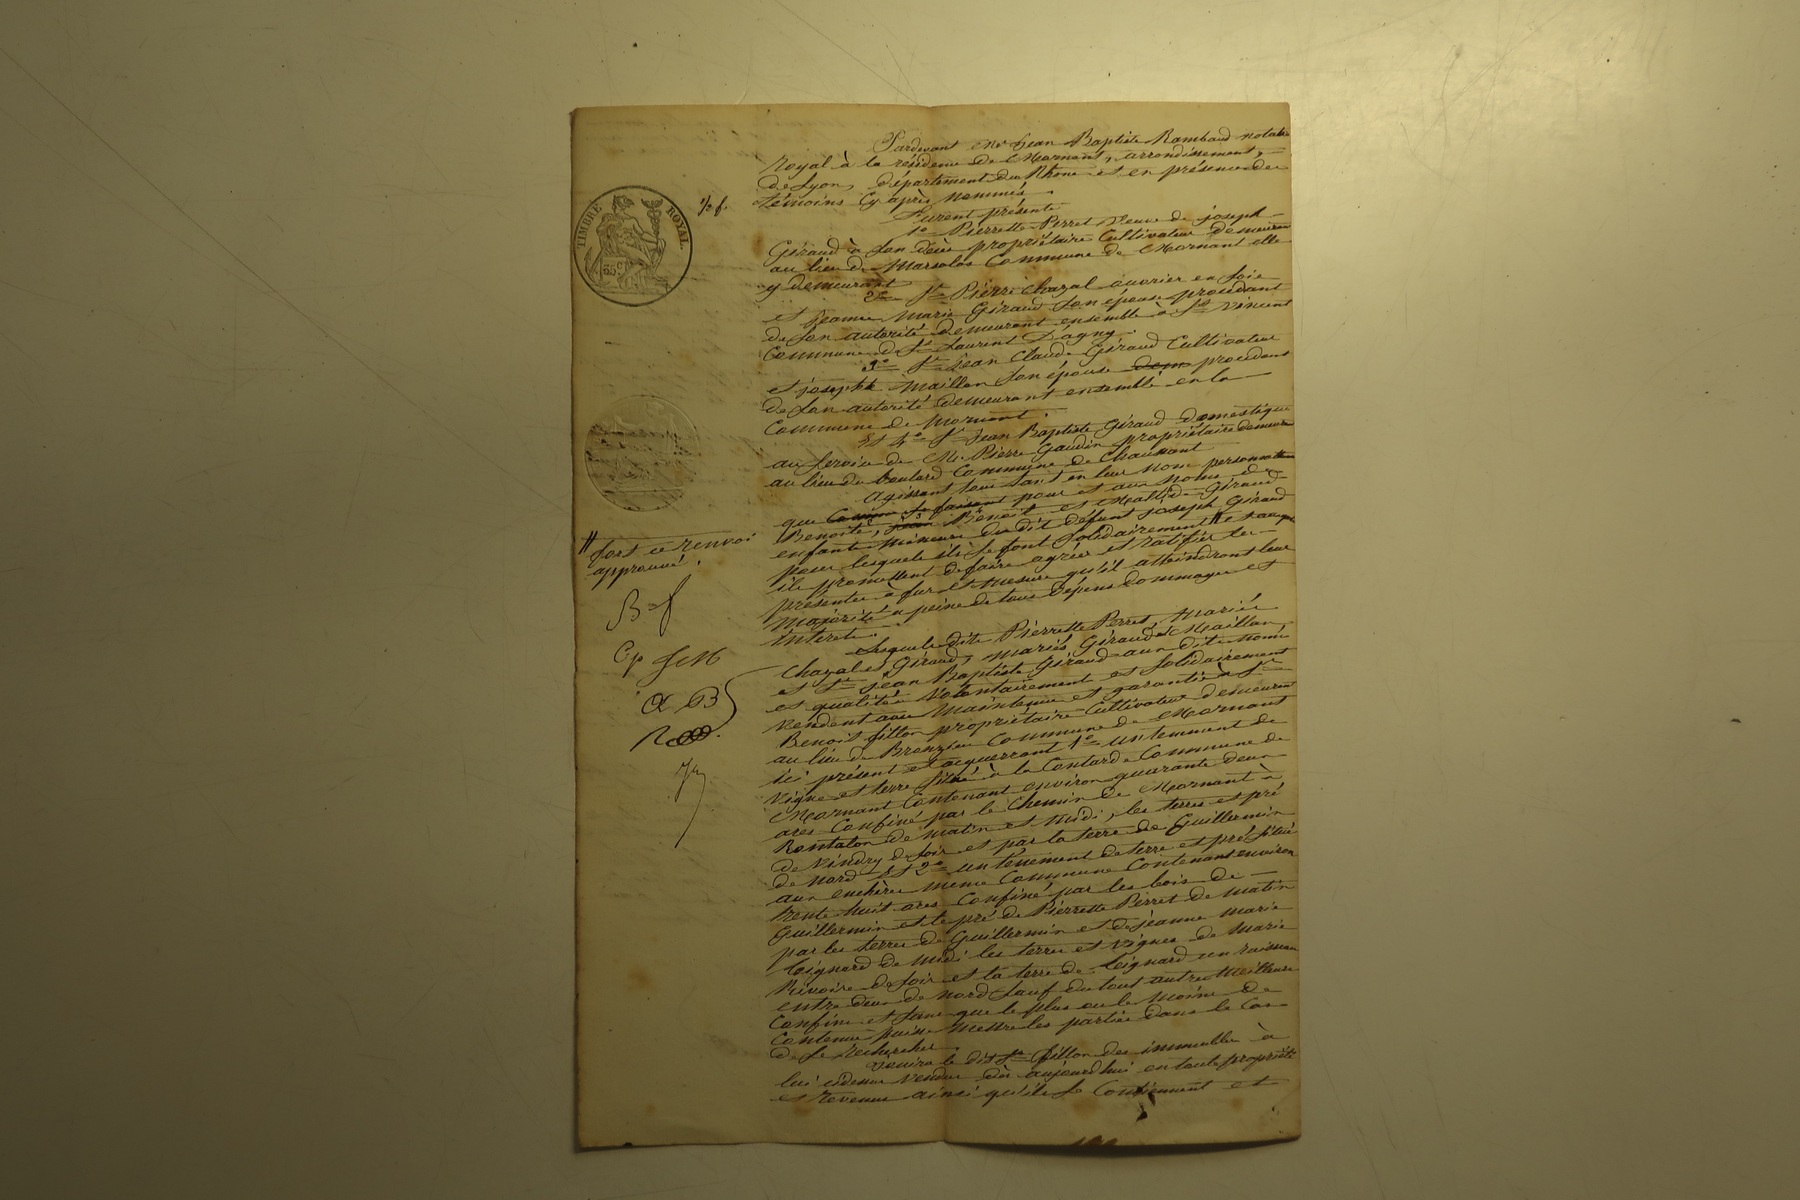 TIMBRE ROYAL
35 c
Pardevant Me Jean Baptiste Rambaud notaire
Royal à la résidence de Mornant, arrondissement,
de Lyon, département du Rhône et en présence des
témoins Cy après nommés.
Furent présents
1o Pierrette Perret Veuve de joseph
Giraud à Son décès propriétaire Cultivateur demeurant
au lieu de Commune de Mornant elle
y demeurant
2o Sr Pierre Chazal ouvrier en Soie
et Jeanne Marie Giraud Son épouse procédant
de Son autorité demeurant ensemble à St Vincent
Commune de St Laurent D'agny.
3o Sr Jean Claude Giraud Cultivateur
et josephte Maillon Son épouse procédant
de Son autorité demeurant ensemble en la
Commune de Mornant.
Et 4o Sr Jean Baptiste Giraud domestique
au Service de Mr Pierre Gaudin propriétaire demeurant
au lieu du boulard Commune de Chaussant
agissant tous tant en leur nom personnelle
que pour et aux noms de
Benoite, Benoit et Giraud
enfants Mineurs du dit défunt joseph Giraud
pour lesquels ils Se font Solidairement // et auxquels
ils promettent de faire agréer et ratifier les
présentes à fur et mesure qu'ils atteindront leur
Majorité à peine de tous dépens dommages et
intérets.
// fort ce renvoi
approuvé.
B f
Cp JCM
Lesquels dits Pierrette Perret, Mariés
Chazal et Giraud, Mariés Giraud et Maillon,
et Sr Jean Baptiste Giraud aux dits noms
et qualités Volontairement et Solidairement
Vendent avec Maintenue et garantie à Sr
Benoit fillon propriétaire Cultivateur demeurant
au lieu de Commune de Mornant
ici présent et acquerrant 1o un tenement de
Vigne et terre Situé à la Contarde Commune de
Mornant Contenant environ quarante deux
ares Confiné par le Chemin de Mornant à
Rontalon de matin et Midi, les terres et pré
de Vindry de Soir et par la terre de Guillermin
de nord Et 2o un tenement de terre et pré Situé
aux enchères même Commune Contenant environ
trente huit ares Confiné par les bois de
Guillermin et le pré de Pierrette Perret de Matin
par les terres de Guillermin et de jeanne Marie
de Midi les terres et Vignes de Marie
Rivoire de Soir et la terre de un
entre deux de nord Sauf du tout autres Meilleurs
Confins et Sans que le plus ou le Moins de
Contenue puisse Mettre les parties dans le Cas
de Se rechercher.
Jouira le dit Sr fillon des immeubles à
lui cidessus Vendus dès aujourdhui en toute propriété
et revenus ainsi qu'ils Se Contiennent et